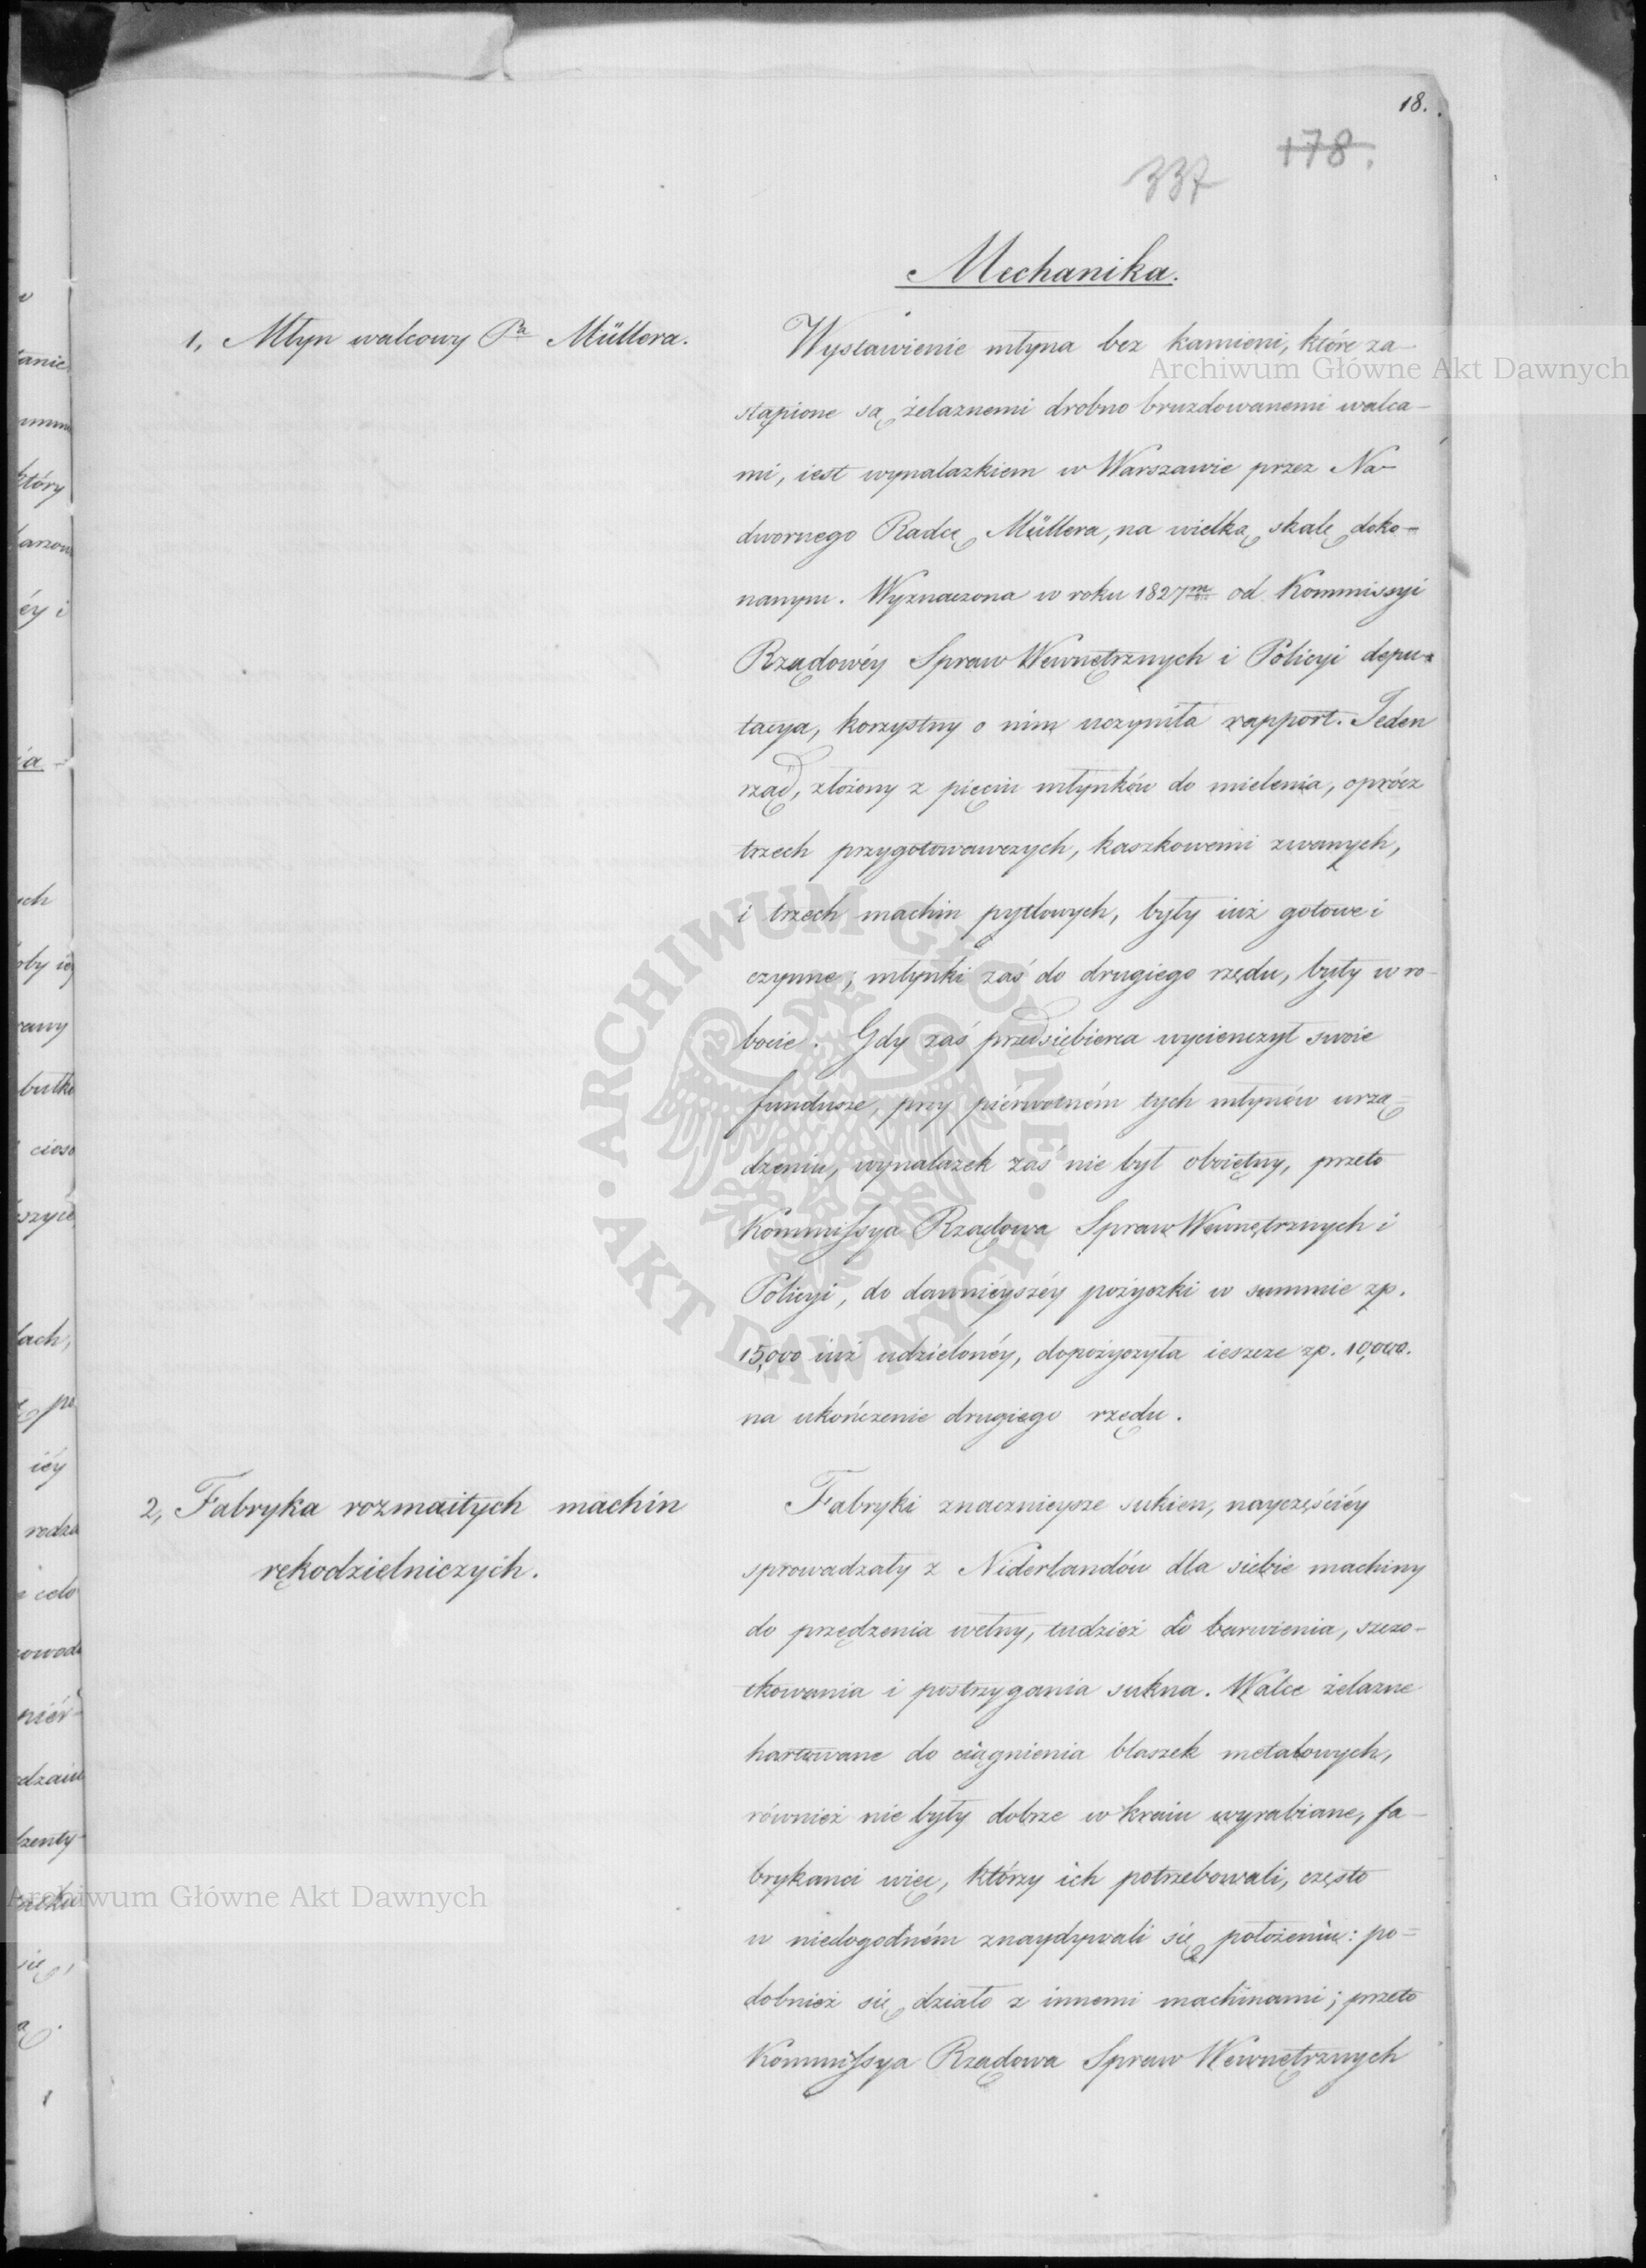 18.
178.
337
Mechanika.
1, Młyn walcowy Pa Müllera.
Wystawienie młyna bez kamieni, które za-
stąpione są żelaznemi drobno bruzdowanemi walca-
mi, iest wynalazkiem w Warszawie przez Na-
dwornego Radcę Müllera, na wielką skalę doko=
nanym. Wyznaczona w roku 1827ym od Kommissyi
Rządowéy Spraw Wewnętrznych i Policyi depu=
tacya, korzystny o nim uczyniła rapport. Jeden
rząd, złożony z pięciu młynków do mielenia, oprócz
trzech przygotowawczych, kaszkowemi zwanych,
i trzech machin pytlowych, były iuż gotowe i
czynne; młynki zaś do drugiego rzędu, były w ro-
bocie. Gdy zaś przedsiębierca wycienczył swoie
fundusze, przy piérwotném tych młynów urzą=
dzeniu, wynalazek zaś nie był oboiętny, przeto
Kommissya Rządowa Spraw Wewnętrznych i
Policyi, do dawniéyszéy pożyczki w summie zp.
15,000 iuż udzielonéy, dopożyczyła ieszcze zp. 10,000.
na ukończenie drugiego rzędu.
2, Fabryka rozmaitych machin
rękodzielniczych.
Fabryki znacznieysze sukien, nayczęściéy
sprowadzały z Niderlandów dla siebie machiny
do przędzenia wełny, tudzież do barwienia, szczo-
tkowania i postrzygania sukna. Walce żelazne
hartowane do ciągnienia blaszek metalowych,
również nie były dobrze w kraiu wyrabiane, fa-
brykanci więc, którzy ich potrzebowali, często
w niedogodném znaydywali się położeniu: po=
dobnież się działo z innemi machinami; przeto
Kommissya Rządowa Spraw Wewnętrznych
Archiwum Główne Akt Dawnych
ARCHIWUM GŁÓWNE · AKT DAWNYCH ·
Archiwum Główne Akt Dawnych